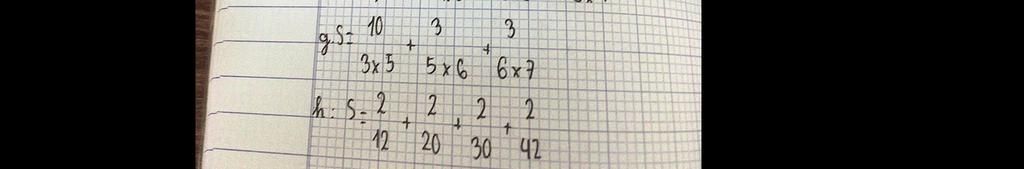 g. S = 10/3x5 + 3/5x6 + 3/6x7
h: S = 2/12 + 2/20 + 2/30 + 2/42